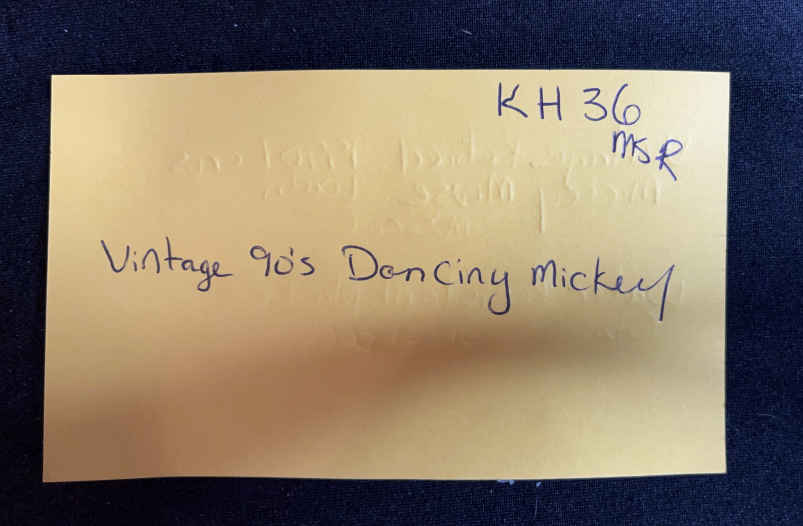 KH 36
MSR
Vintage 90's Dancing Mickey